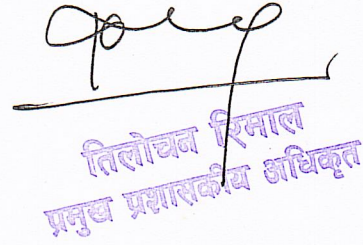 तिलोचन रिमाल
प्रमुख प्रशासकीय अधिकृत